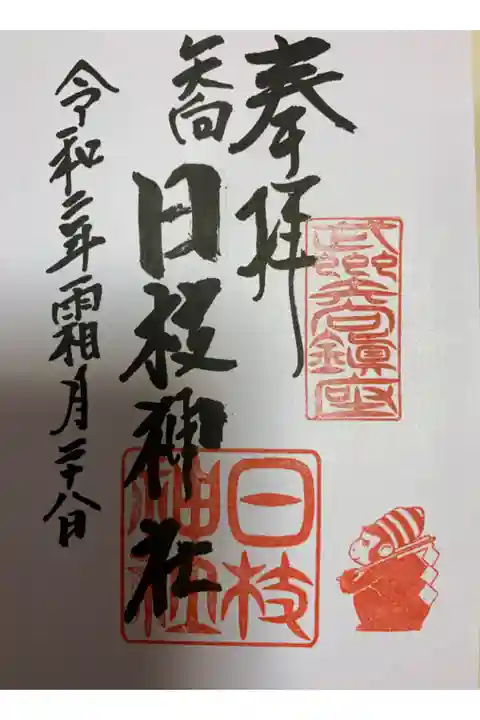 奉拝
武州矢向鎮座
矢向
日枝神社
日枝神社
令和二年霜月二十八日